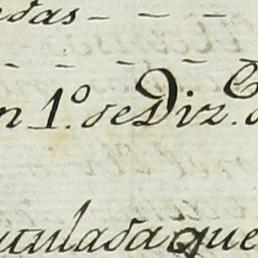 das - - - -
n 1.º de Diz.
utulada que